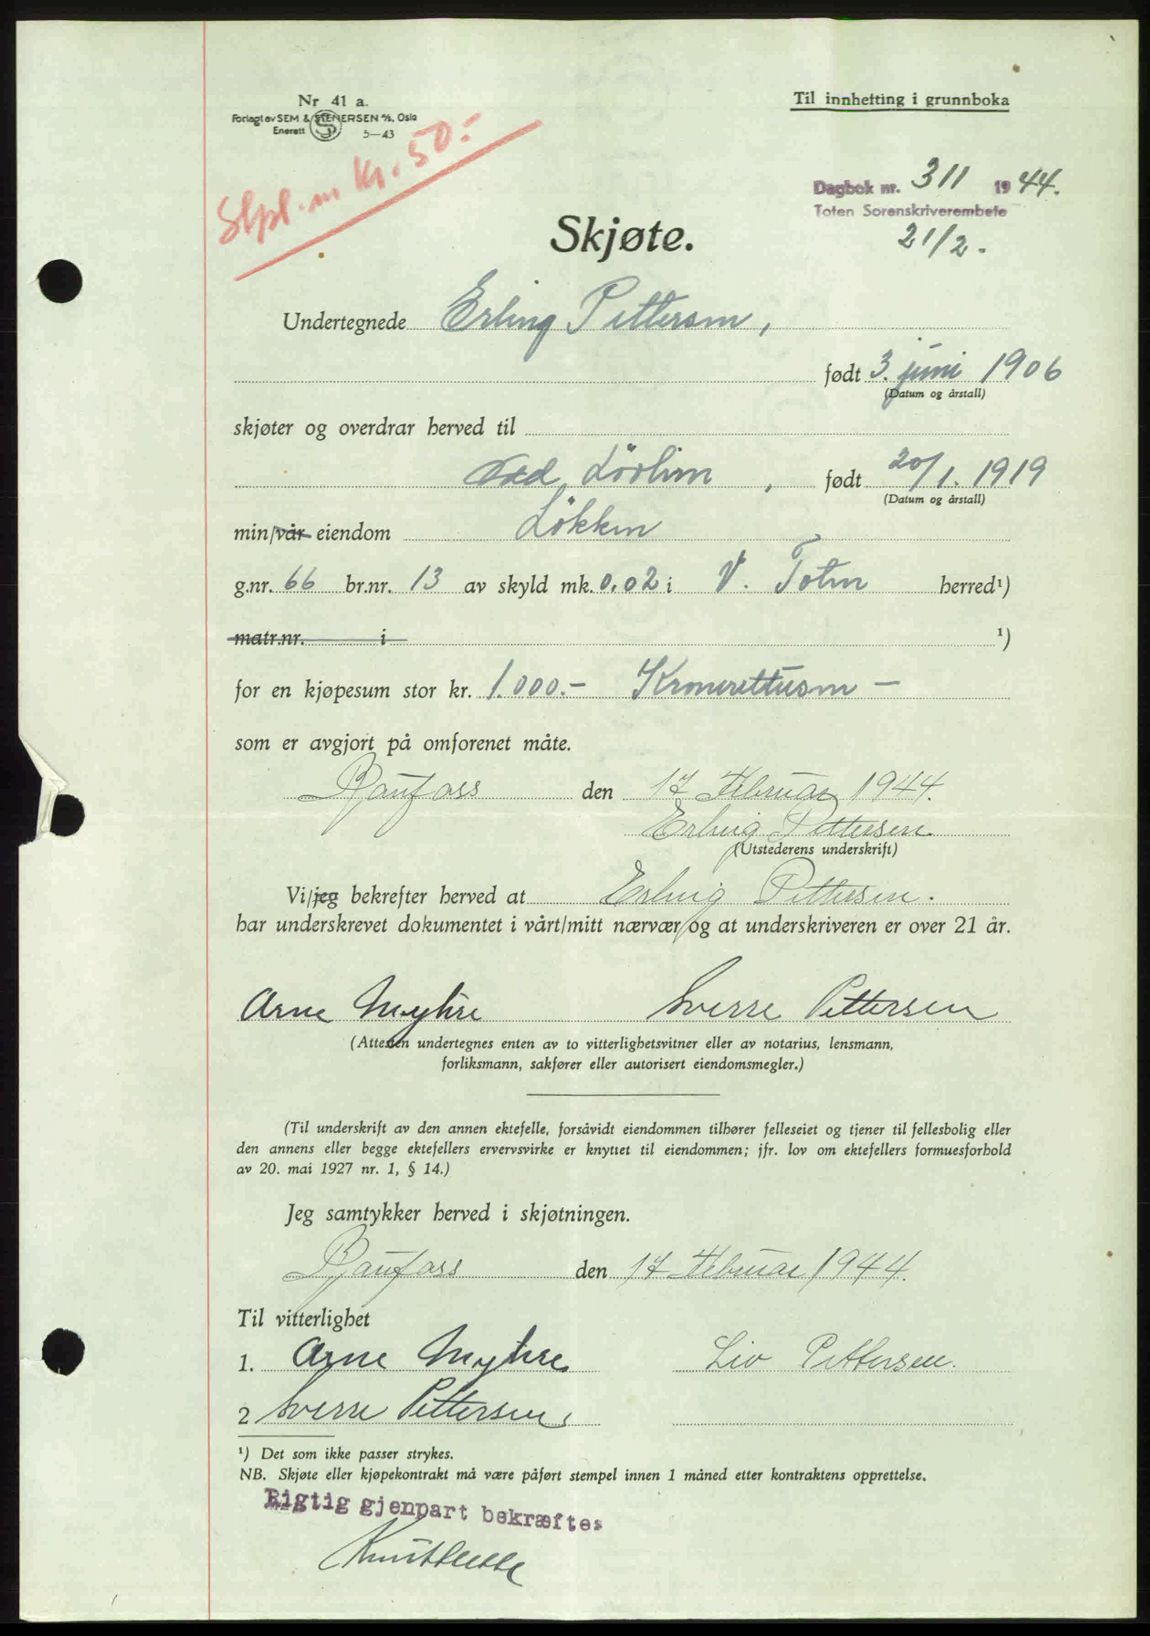 Nr 41 a.
Forlagt av SEM & STENERSEN A/S, Oslo
Enerett 5—43
Til innhefting i grunnboka
Stpl. m Kr. 50.-
Dagbok nr. 311 1944.
Toten Sorenskriverembete
21/2.
Skjøte.
Undertegnede Erling Pettersen,
født 3. juni 1906
(Datum og årstall)
skjøter og overdrar herved til
Odd Lövlien, født 20/1. 1919
(Datum og årstall)
min/vår eiendom Lökken
g.nr. 66 br.nr. 13 av skyld mk. 0,02 i V. Toten herred¹)
matr.nr. i ¹)
for en kjøpesum stor kr. 1.000.- Kroneettusen —
som er avgjort på omforenet måte.
Raufoss den 17 Februar 1944.
Erling Pettersen.
(Utstederens underskrift)
Vi/jeg bekrefter herved at Erling Pettersen.
har underskrevet dokumentet i vårt/mitt nærvær og at underskriveren er over 21 år.
Arne Myhre Sverre Pettersen
(Attesten undertegnes enten av to vitterlighetsvitner eller av notarius, lensmann,
forliksmann, sakfører eller autorisert eiendomsmegler.)
(Til underskrift av den annen ektefelle, forsåvidt eiendommen tilhører felleseiet og tjener til fellesbolig eller
den annens eller begge ektefellers ervervsvirke er knyttet til eiendommen; jfr. lov om ektefellers formuesforhold
av 20. mai 1927 nr. 1, § 14.)
Jeg samtykker herved i skjøtningen.
Raufoss den 17 Februar 1944.
Til vitterlighet
1. Arne Myhre Liv Pettersen.
2 Sverre Pettersen.
¹) Det som ikke passer strykes.
NB. Skjøte eller kjøpekontrakt må være påført stempel innen 1 måned etter kontraktens opprettelse.
Rigtig gjenpart bekræftes